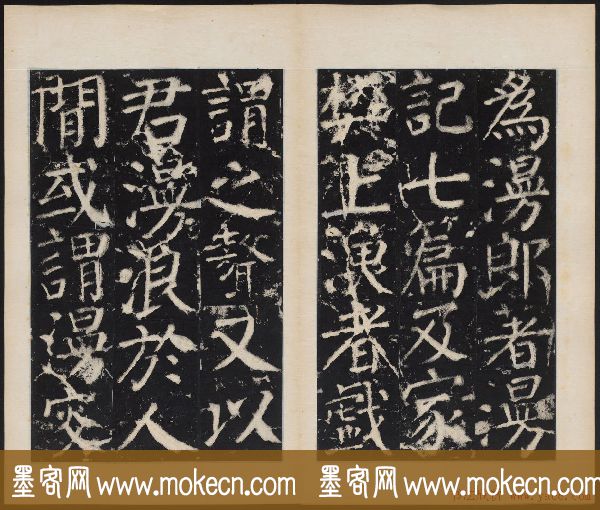 爲漫郎者漫
記七篇及家
樊上漁者戲
謂之聱又以
君漫浪於人
間或謂漫叟
墨客网 www.mokecn.com 墨客网 www.mokecn.com